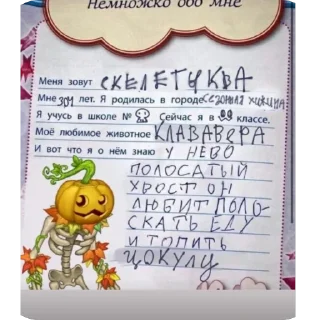 Немножко обо мне
Меня зовут СКЕЛЕТУКВА
Мне 301 лет. Я родилась в городе
Я учусь в школе № Сейчас я в классе.
Моё любимое животное КЛАВАВЕРА
И вот что я о нём знаю У НЕВО
ПОЛОСАТЫЙ
ХВОСТ ОН
ЛЮБИТ ПОЛО-
СКАТЬ ЕДУ
И ТОПИТЬ
ЦОКУЛУ